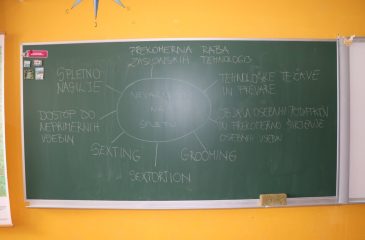 PREKOMERNA RABA
ZASLONSKIH TEHNOLOGIJ
SPLETNO
NASILJE
TEHNOLOŠKE TEŽAVE
IN PREVARE
NEVARNOSTI
NA
SPLETU
DOSTOP DO
NEPRIMERNIH
VSEBIN
OSEBNIH PODATKOV
IN PREKOMERNO
OSEBNIH VSEBIN
SEXTING
GROOMING
SEXTORTION